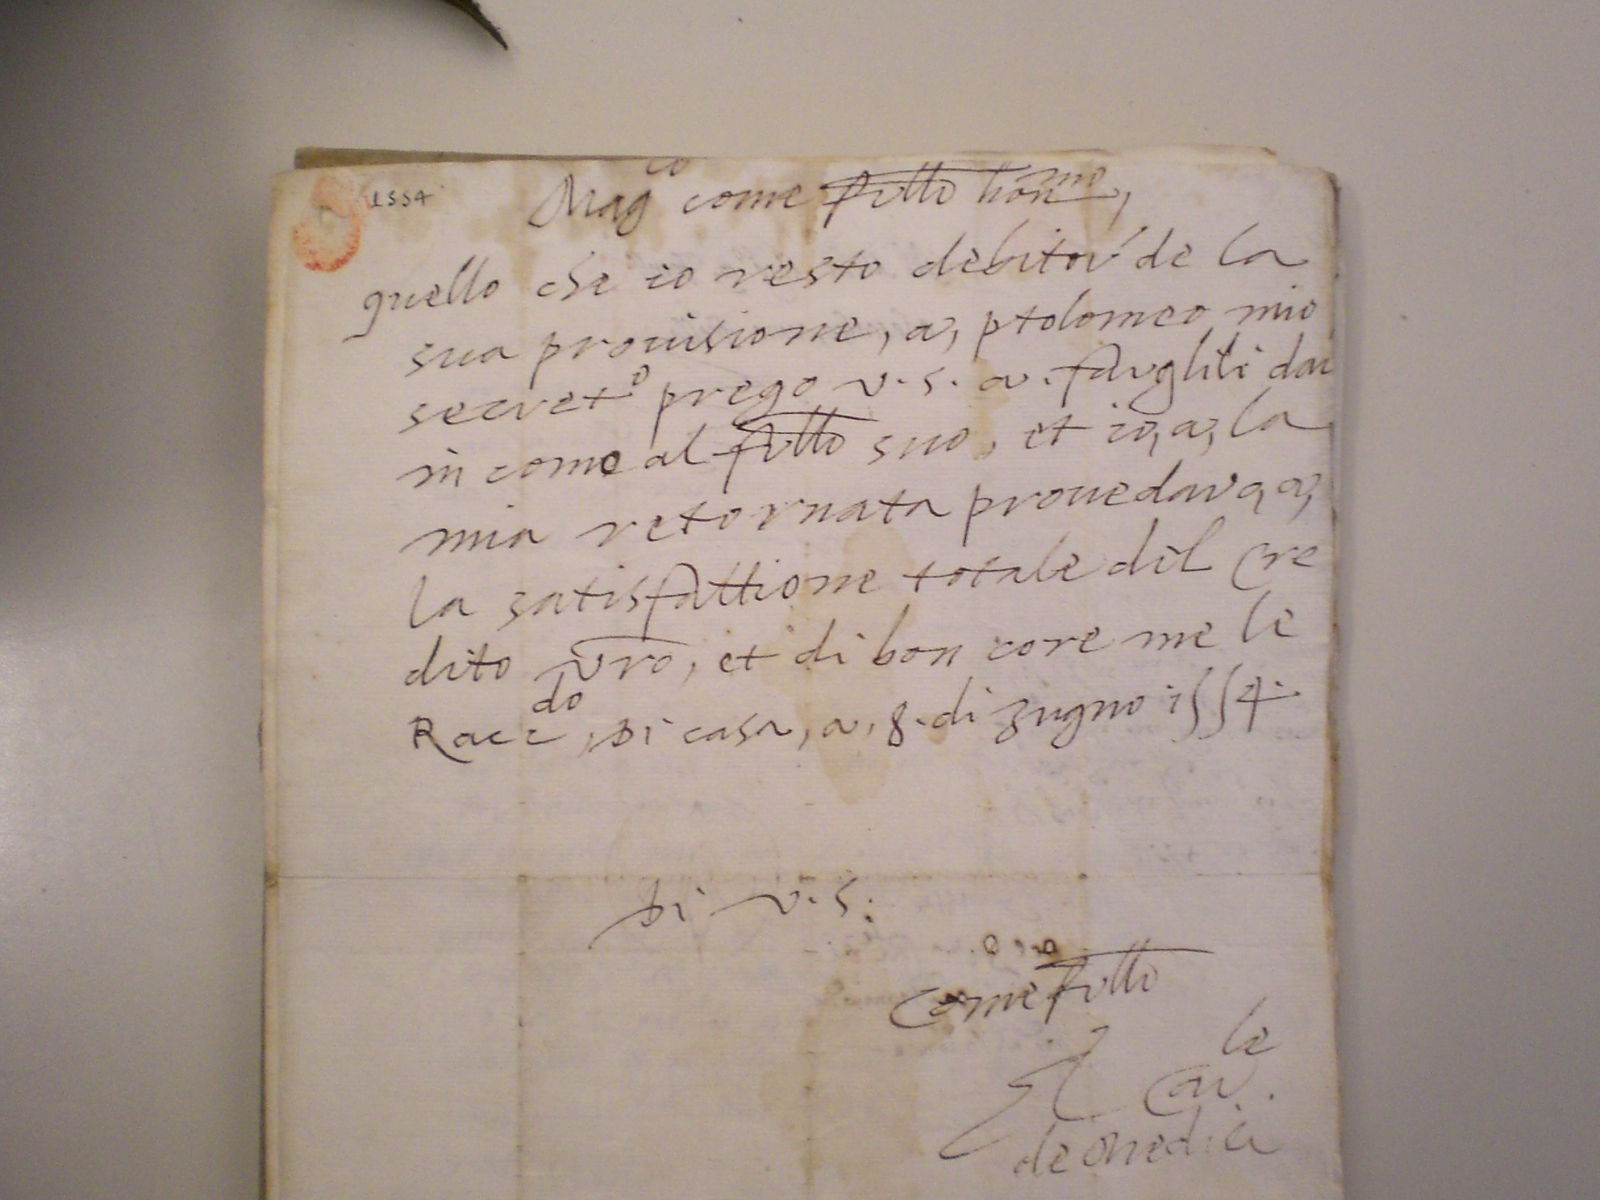 1554
Mag.co come fr̃llo hon.mo,
quello che io resto debitor de la
sua provisione, a, ptolomeo mio
secret.o prego v. s. a. farglili dar
in come al fr̃llo suo, et io, a, la
mia retornata provedarò, a,
la satisfattione totale dil cre
dito vr̃o, et di bon core me le
Racc.do, Di casa, a, 8. di zugno 1554.
Di v. s.
come fr̃llo
Il Car.le
de Medici